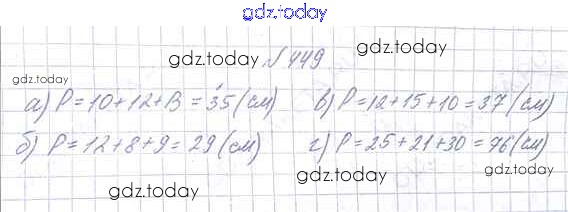 gdz.today
gdz.today №449 gdz.today
gdz.today
а) P = 10 + 12 + 13 = 35 (см) в) P = 12 + 15 + 10 = 37 (см)
б) P = 12 + 8 + 9 = 29 (см) г) P = 25 + 21 + 30 = 76 (см)
gdz.today gdz.today gdz.today